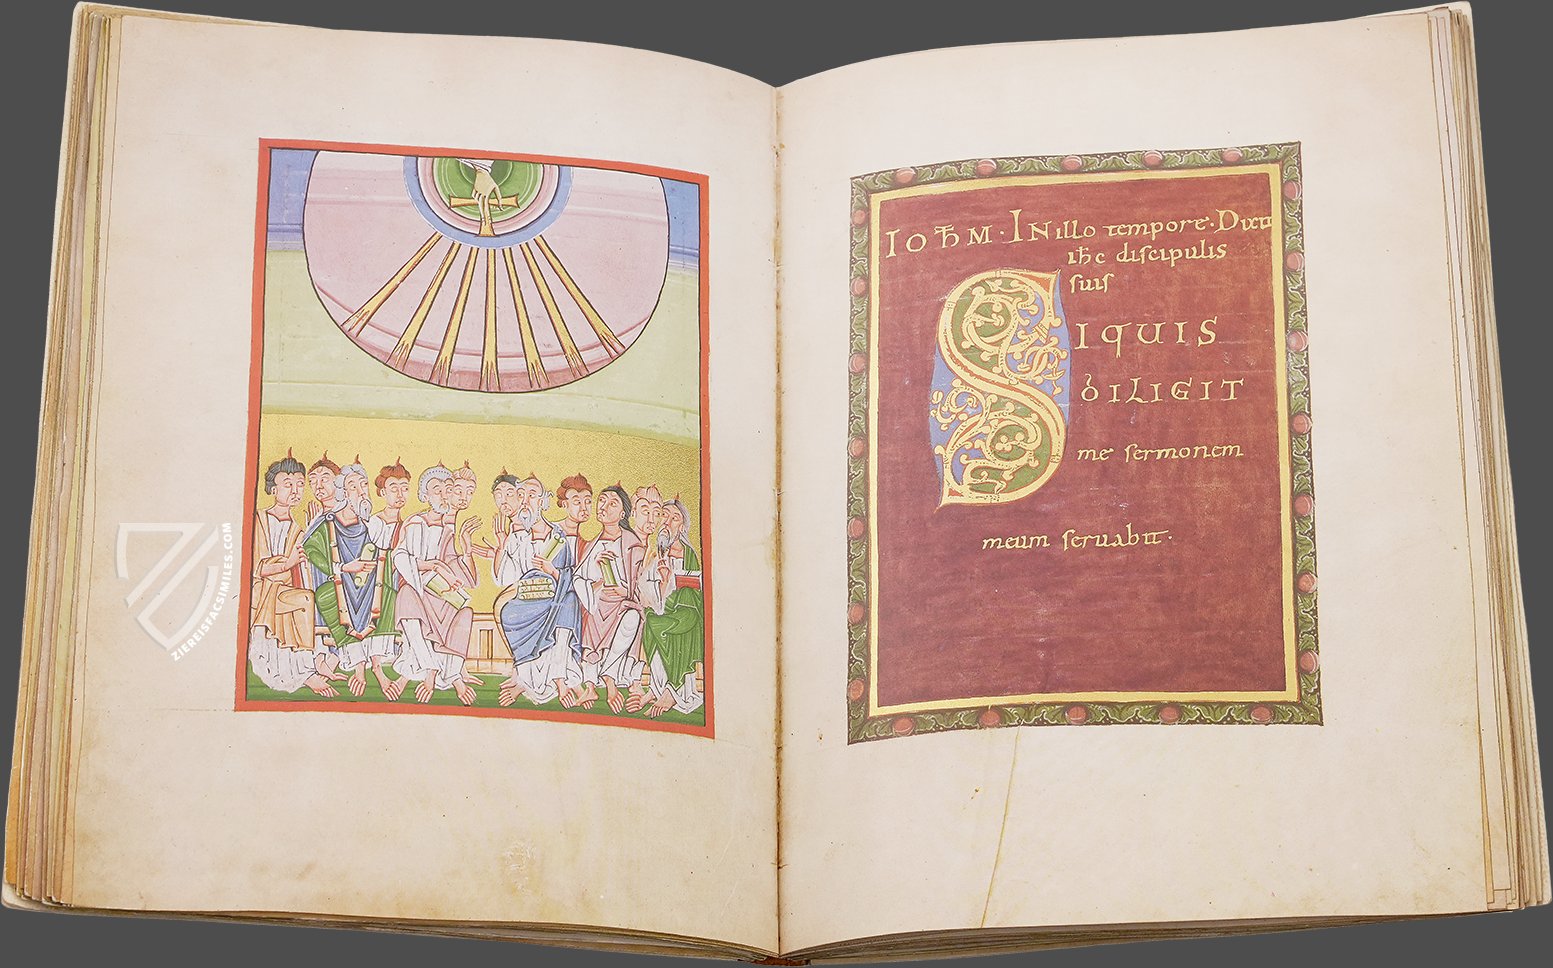 ZIEREISFACSIMILES.COM
IOħM · IN illo tempore · Dixit
iħc discipulis
suis
SIQUIS
DILIGIT
me sermonem
meum seruabit ·